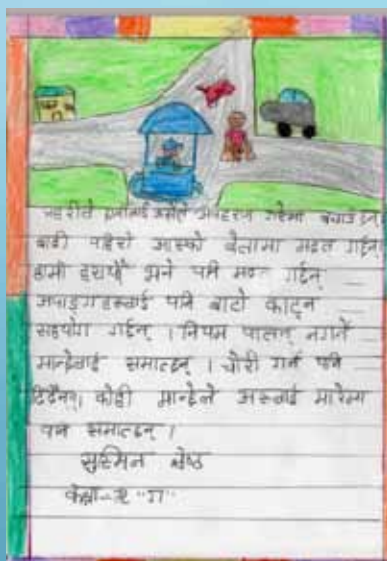 प्रहरीले हामीलाई कसैले अपहरण गरेमा बचाउँछन्
बाढी पहिरो आएको बेलामा मद्दत गर्छन्
हामी हरायौँ भने पनि मद्दत गर्छन्
अपाङ्गहरुलाई पनि बाटो काट्न
सहयोग गर्छन् । नियम पालन नगर्ने
मान्छेलाई समात्छन् । चोरी गर्न पनि
दिँदैनन्। कोही मान्छेले अरुलाई मारेमा
पनि समात्छन् ।
सुस्मिन श्रेष्ठ
कक्षा-२ "ग"